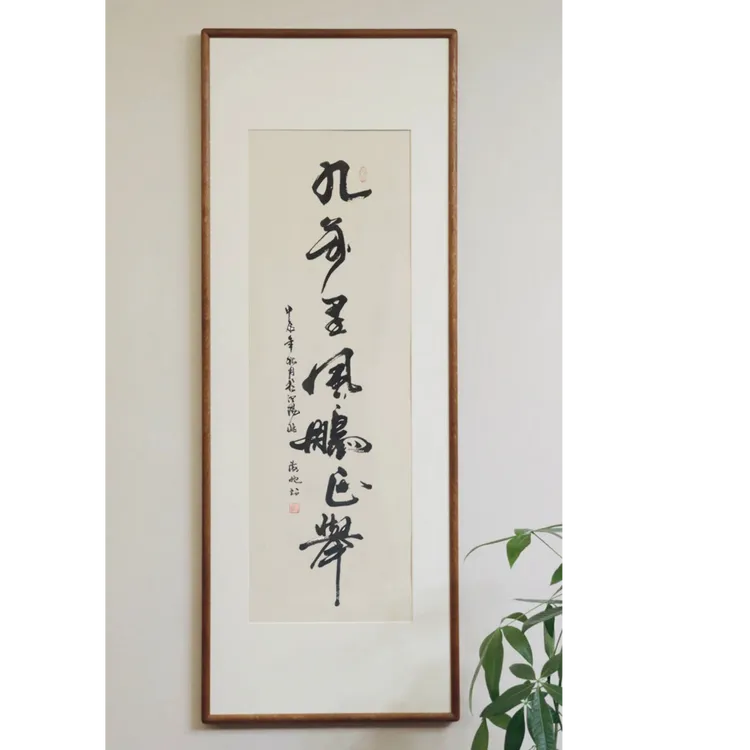 九万里風鵬正舉
甲辰年秋月於沈陽